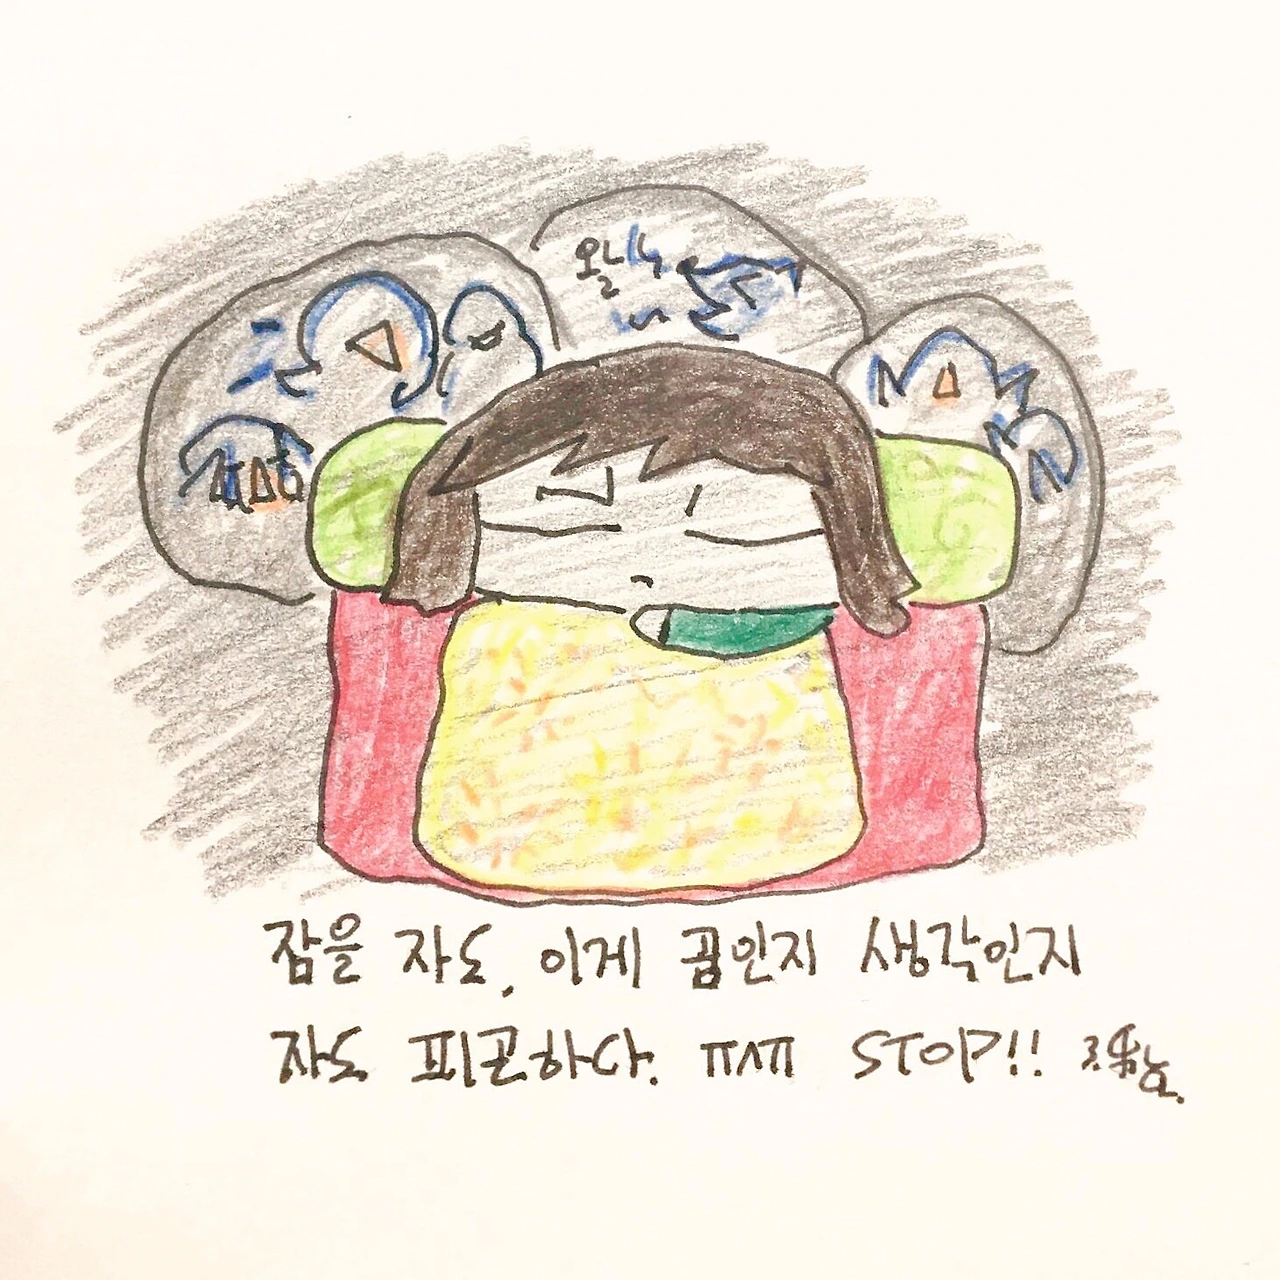 왈
잠을 자도, 이게 꿈인지 생각인지
자도 피곤하다. ㅠㅅㅠ STOP!!